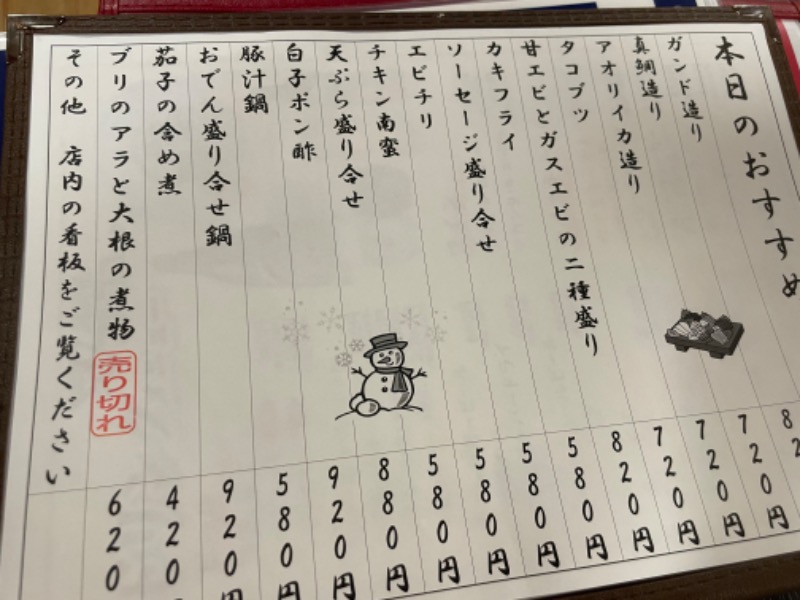 本日のおすすめ
ガンド造り 82
真鯛造り 720円
アオリイカ造り 720円
タコブツ 720円
甘エビとガスエビの二種盛り 820円
カキフライ 580円
ソーセージ盛り合せ 580円
エビチリ 580円
チキン南蛮 580円
天ぷら盛り合せ 880円
白子ポン酢 920円
豚汁鍋 580円
おでん盛り合せ鍋 920円
茄子の含め煮 420
ブリのアラと大根の煮物 売り切れ 620
その他 店内の看板をご覧ください